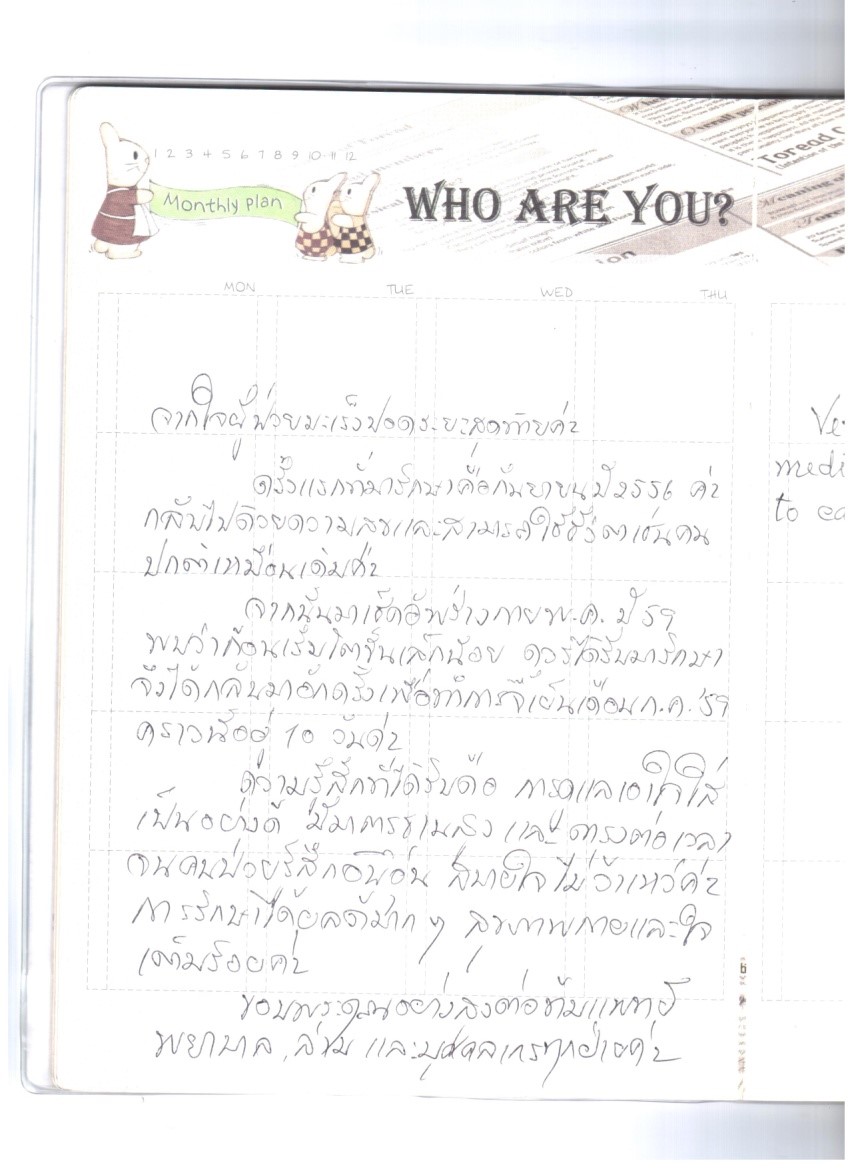 1 2 3 4 5 6 7 8 9 10 11 12
Monthly plan
WHO ARE YOU?
Overall
Toread
Meaning of
ion
MON TUE WED THU
จากใจผู้ป่วยมะเร็งปอดระยะสุดท้ายค่ะ
ครั้งแรกที่มารักษาคือกันยายน ปี 2556 ค่ะ
กลับไปด้วยความสุขและสามารถใช้ชีวิตเช่นคน
ปกติเหมือนเดิมค่ะ
จากนั้นมาเช็คอัพร่างกาย พ.ค. ปี 59
พบว่าก้อนเริ่มโตขึ้นเล็กน้อย ควรได้รับมารักษา
จึงได้กลับมาอีกครั้งเพื่อทำการจี้เย็นเดือน ก.ค. '59
คราวนี้อยู่ 10 วันค่ะ
ความรู้สึกที่ได้รับคือ การดูแลเอาใจใส่
เป็นอย่างดี มีมาตรฐานสูง และตรงต่อเวลา
จนคนป่วยรู้สึกอบอุ่น สบายใจ ไม่ว้าเหว่ค่ะ
การรักษาได้ผลดีมาก ๆ สุขภาพกายและใจ
เต็มร้อยค่ะ
ขอบพระคุณอย่างสูงต่อทีมแพทย์
พยาบาล, ล่าม และบุคคลากรทุกฝ่ายค่ะ
medi
to ea